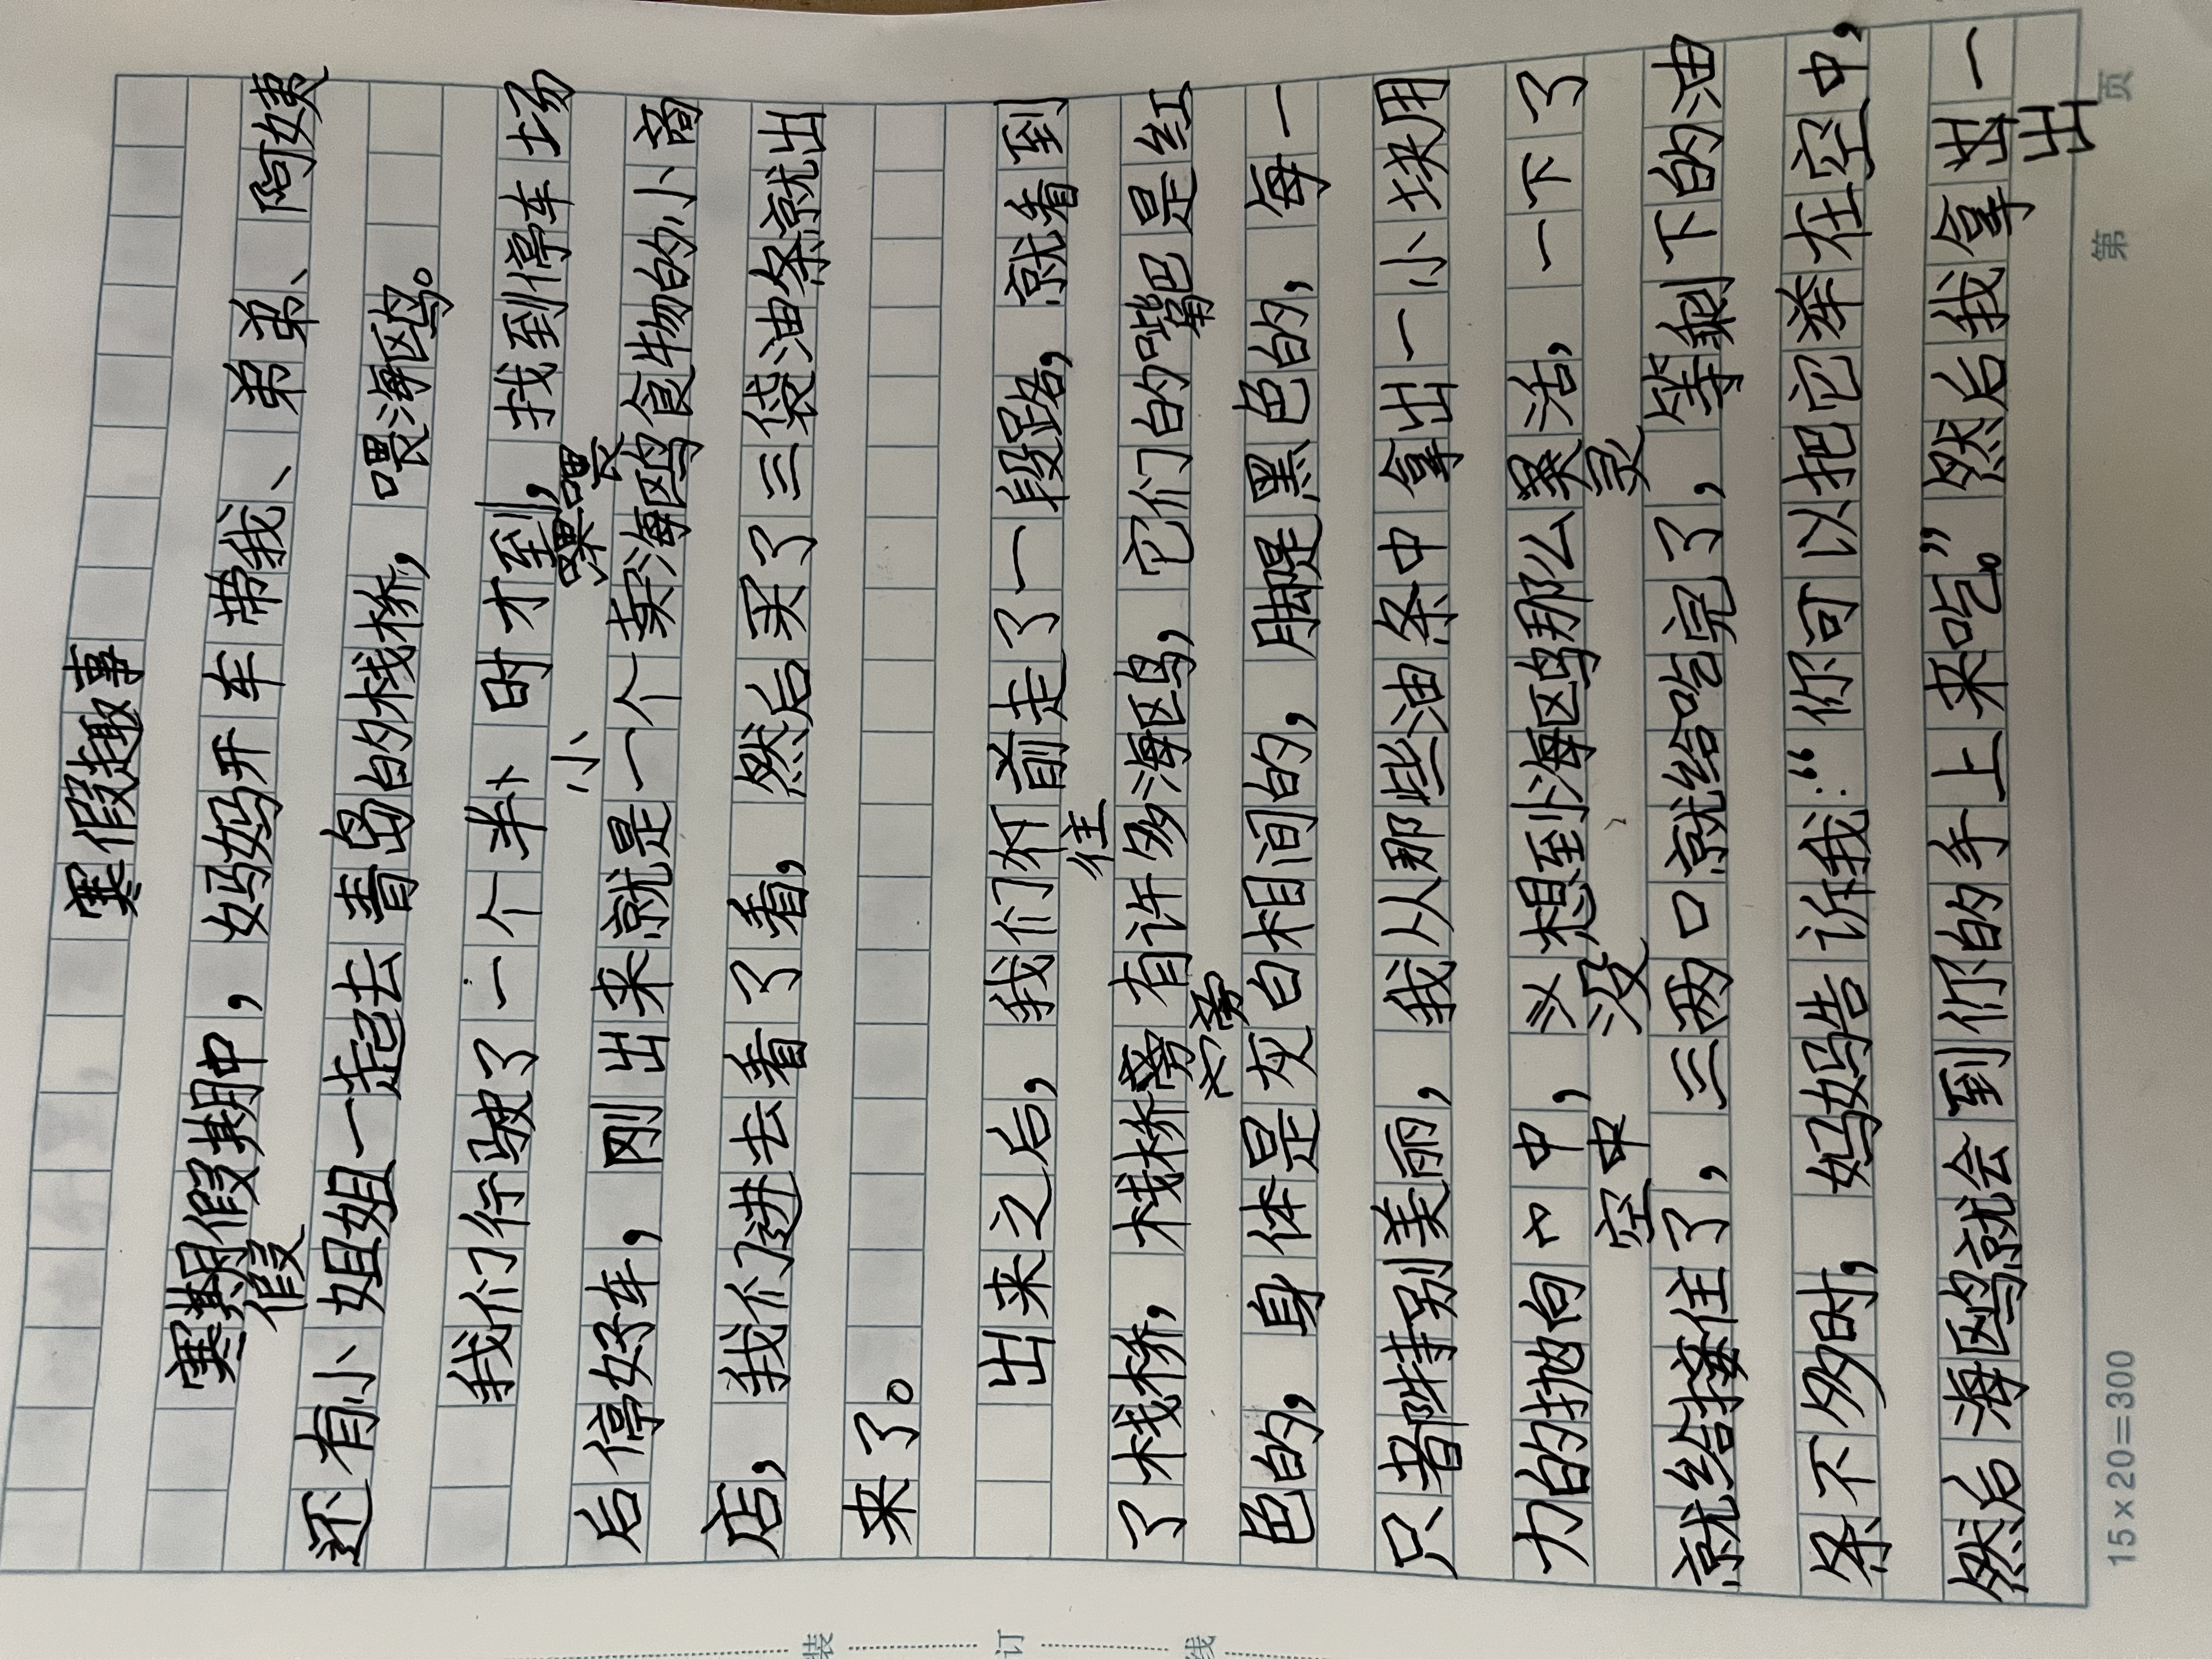 寒假趣事
寒期假期中，妈妈开车带我、弟弟、阿姨
假
还有小姐姐一起去青岛的栈桥，喂海鸥。
我们行驶了一个半小时才到，找到停车场
小
喂
后停好车，刚出来就是一个卖海鸥食物的小商
店，我们进去看了看，然后买了三袋油条就出
来了。
出来之后，我们往前走了一段路，就看到
往
了栈桥，栈桥旁有许多海鸥，它们的嘴巴是红
旁
色的，身体是灰白相间的，脚是黑色的，每一
只都特别美丽，我从那些油条中拿出一小块用
力的抛向中，没想到海鸥那么灵活，一下了
空中 没 灵
就给接住了，三两口就给吃完了，等剩下的油
条不多时，妈妈告诉我：“你可以把它举在空中，
然后海鸥就会到你的手上来吃。”然后我拿出一
出
15×20=300 第 页
装 订 线